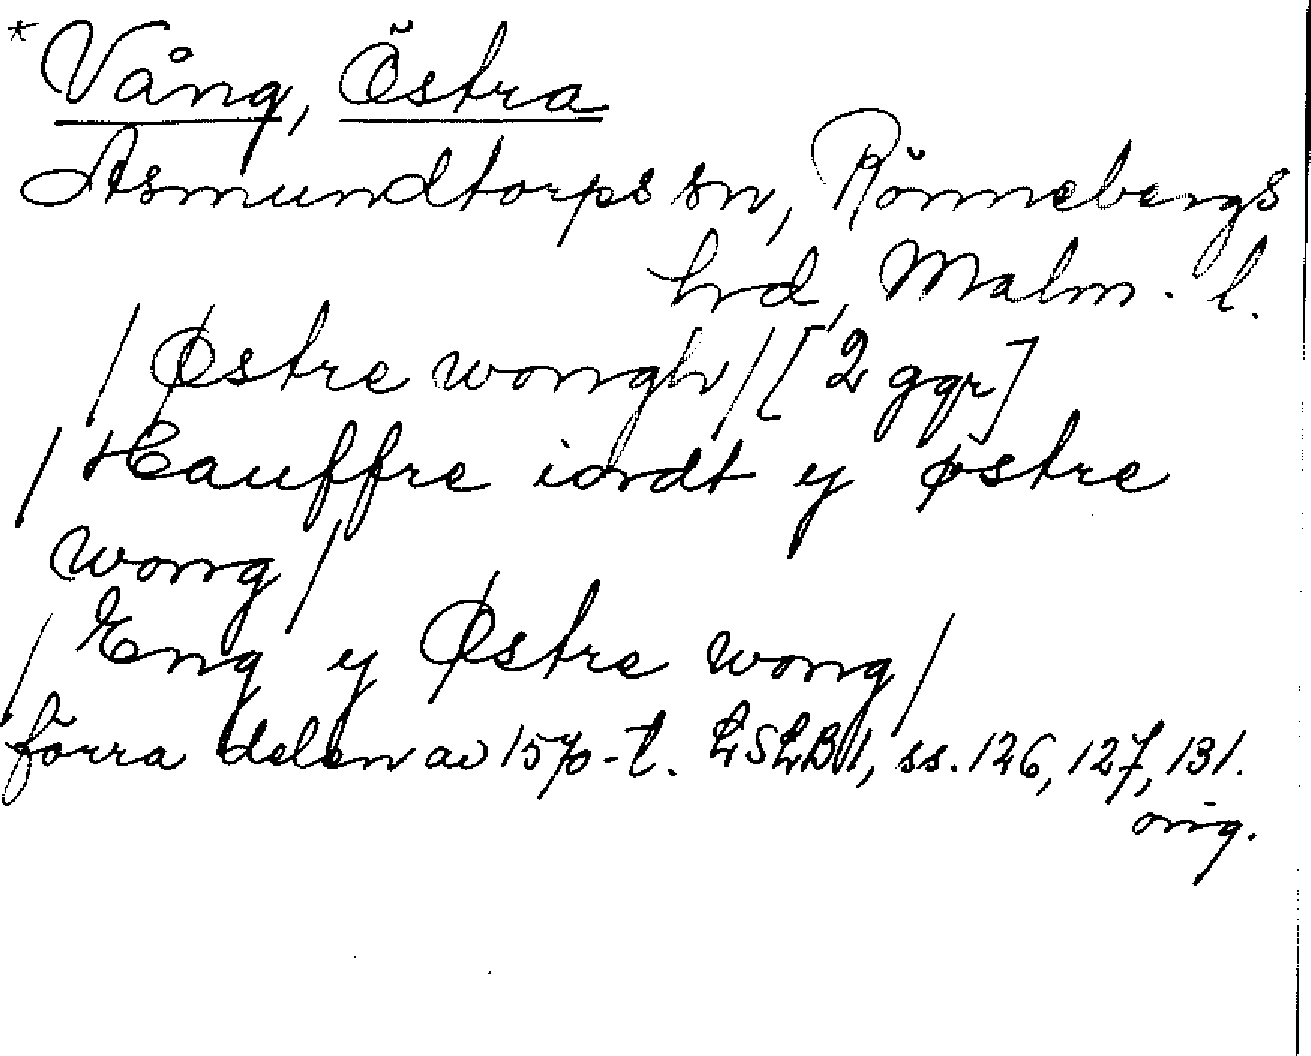 *Vång, Östra
Asmundtorps sn, Rönnebergs
hrd, Malm. l.
/Østre wongh/ [2 ggr]
/Hauffre iordt y østre
wong/
/Eng y Østre wong/
förra delen av 1570-t. LSLB 1, ss. 126, 127, 131.
orig.